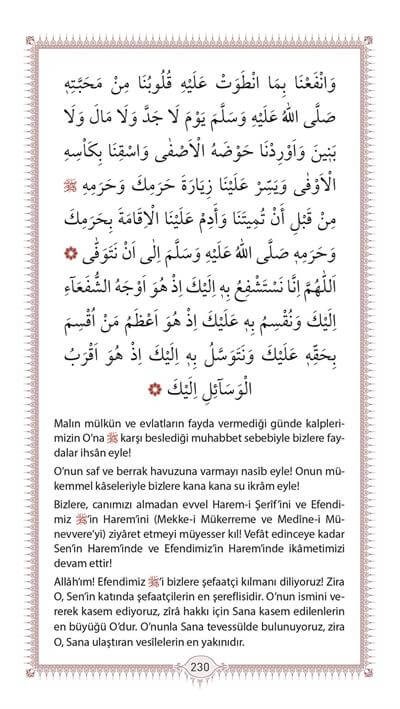 وَانْفَعْنَا بِمَا انْطَوَتْ عَلَيْهِ قُلُوبُنَا مِنْ مَحَبَّتِهِ
صَلَّى اللهُ عَلَيْهِ وَسَلَّمَ يَوْمَ لَا جَدَّ وَلَا مَالَ وَلَا
بَنِينَ وَاَوْرِدْنَا حَوْضَهُ الْاَصْفٰى وَاسْقِنَا بِكَاْسِهِ
الْاَوْفٰى وَيَسِّرْ عَلَيْنَا زِيَارَةَ حَرَمِكَ وَحَرَمِهِ ﷺ
مِنْ قَبْلِ أَنْ تُمِيتَنَا وَأَدِمْ عَلَيْنَا الْاِقَامَةَ بِحَرَمِكَ
وَحَرَمِهِ صَلَّى اللهُ عَلَيْهِ وَسَلَّمَ اِلٰى اَنْ نَتَوَفّٰى
اَللّٰهُمَّ اِنَّا نَسْتَشْفِعُ بِهِ اِلَيْكَ اِذْ هُوَ اَوْجَهُ الشُّفَعَاۤءِ
اِلَيْكَ وَنُقْسِمُ بِهِ عَلَيْكَ اِذْ هُوَ اَعْظَمُ مَنْ اُقْسِمَ
بِحَقِّهِ عَلَيْكَ وَنَتَوَسَّلُ بِهِ اِلَيْكَ اِذْ هُوَ اَقْرَبُ
الْوَسَاۤئِلِ اِلَيْكَ
Malın mülkün ve evlatların fayda vermediği günde kalpleri-
mizin O'na ﷺ karşı beslediği muhabbet sebebiyle bizlere fay-
dalar ihsân eyle!
O'nun saf ve berrak havuzuna varmayı nasîb eyle! Onun mü-
kemmel kâseleriyle bizlere kana kana su ikrâm eyle!
Bizlere, canımızı almadan evvel Harem-i Şerîf'ini ve Efendi-
miz ﷺ'in Harem'ini (Mekke-i Mükerreme ve Medîne-i Mü-
nevvere'yi) ziyâret etmeyi müyesser kıl! Vefât edinceye kadar
Sen'in Harem'inde ve Efendimiz'in Harem'inde ikâmetimizi
devam ettir!
Allâh'ım! Efendimiz ﷺ'i bizlere şefaatçi kılmanı diliyoruz! Zira
O, Sen'in katında şefaatçilerin en şereflisidir. O'nun ismini ve-
rerek kasem ediyoruz, zîrâ hakkı için Sana kasem edilenlerin
en büyüğü O'dur. O'nunla Sana tevessülde bulunuyoruz, zira
O, Sana ulaştıran vesîlelerin en yakınıdır.
230